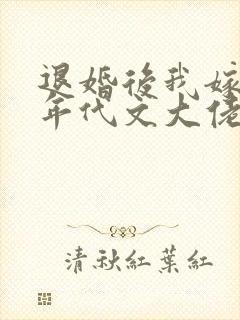 退婚後我嫁
年代文大佬
清秋紅葉紅